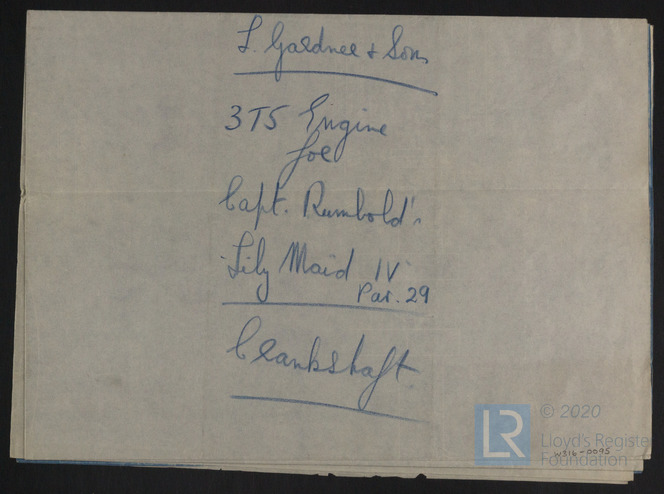 L. Gardner & Sons
3T5 Engine
for
Capt. Rumbold's
"Lily Maid IV"
Par. 29
Crankshaft
LR
© 2020
Lloyd's Register
Foundation
W316-0095